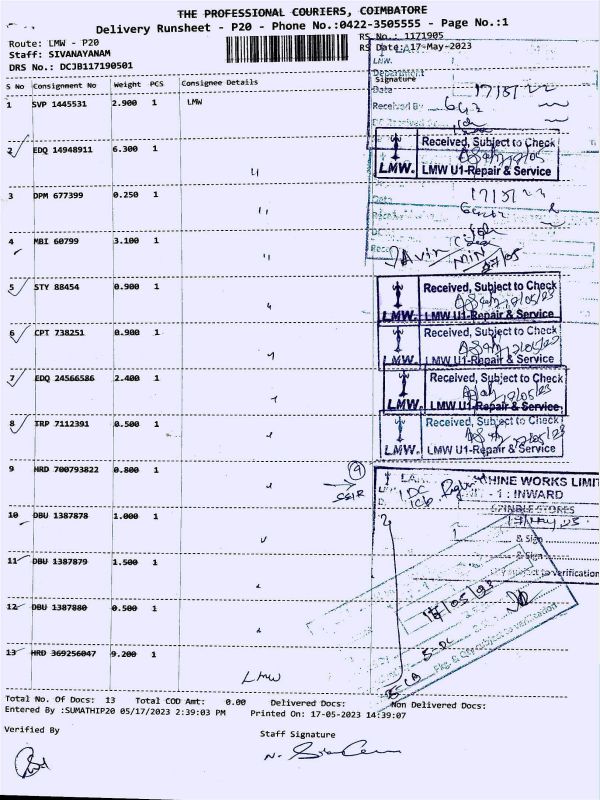 THE PROFESSIONAL COURIERS, COIMBATORE
Delivery Runsheet - P20 - Phone No.:0422-3505555 - Page No.:1
Route: LMW - P20
Staff: SIVANAYANAM
DRS No.: DCJB117190501
RS No.: 1171905
RS Date:17-May-2023
S No Consignment No Weight PCS Consignee Details Signature
1 SVP 1445531 2.900 1 LMW
2 EDQ 14948911 6.300 1 "
3 DPM 677399 0.250 1 "
4 MBI 60799 3.100 1 "
5 STY 88454 0.900 1 "
6 CPT 738251 0.900 1 "
7 EDQ 24566586 2.400 1 "
8 IRP 7112391 0.500 1 "
9 HRD 700793822 0.800 1 "
10 DBU 1387878 1.000 1 "
11 DBU 1387879 1.500 1 "
12 DBU 1387880 0.500 1 "
13 HRD 369256047 9.200 1 LMW
LMW.
Department
Date
Received By
Received, Subject to Check
LMW. LMW U1-Repair & Service
Date
Received, Subject to Check
LMW. LMW U1-Repair & Service
Received, Subject to Check
LMW. LMW U1-Repair & Service
Received, Subject to Check
LMW. LMW U1-Repair & Service
Received, Subject to Check
LMW. LMW U1-Repair & Service
9
HINE WORKS LIMIT
- 1 : INWARD
SPINDLE STORES
& Sign
& Sign
ject to verification
17/05/23
Pkg. & Qty subject to verification
Total No. Of Docs: 13 Total COD Amt: 0.00 Delivered Docs: Non Delivered Docs:
Entered By :SUMATHIP20 05/17/2023 2:39:03 PM Printed On: 17-05-2023 14:39:07
Verified By
Staff Signature